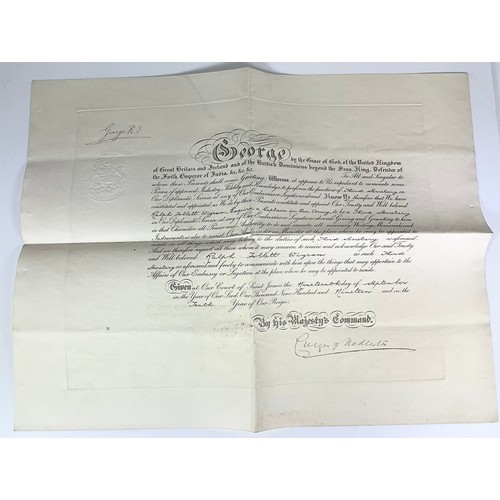 George R.I.
George by the Grace of God, of the United Kingdom
of Great Britain and Ireland and of the British Dominions beyond the Seas, King, Defender of
the Faith, Emperor of India, &c, &c, &c. To All and Singular to
whom these Presents shall come Greeting Whereas it appears to Us expedient to nominate some
Person of approved Industry, Fidelity and Knowledge to perform the functions of Third Secretary in
Our Diplomatic Service at any of Our Embassies or Legations abroad, Know Ye therefore that We have
constituted and appointed as We do by these Presents constitute and appoint Our Trusty and Well beloved
Ralph Follett Wigram, Esquire, to be a Third Secretary
in Our Diplomatic Service at any of Our Embassies or Legations abroad, Giving and Granting to him
in that Character all Power and Authority to do and execute all
Instruments as to such
duties of such Third Secretary as aforesaid
And We therefore request all those whom it may concern to receive and acknowledge Our said Trusty
and Well beloved Ralph Follett Wigram as such Third
Secretary as aforesaid and freely to communicate with him upon the things that may appertain to the
Affairs of Our Embassy or Legation at the place where he may be appointed to reside.
Given at Our Court of Saint James the day of September
in the Year of Our Lord, One Thousand Nine Hundred and Nineteen and in the
Tenth Year of Our Reign.
By His Majesty's Command.
Curzon of Kedleston